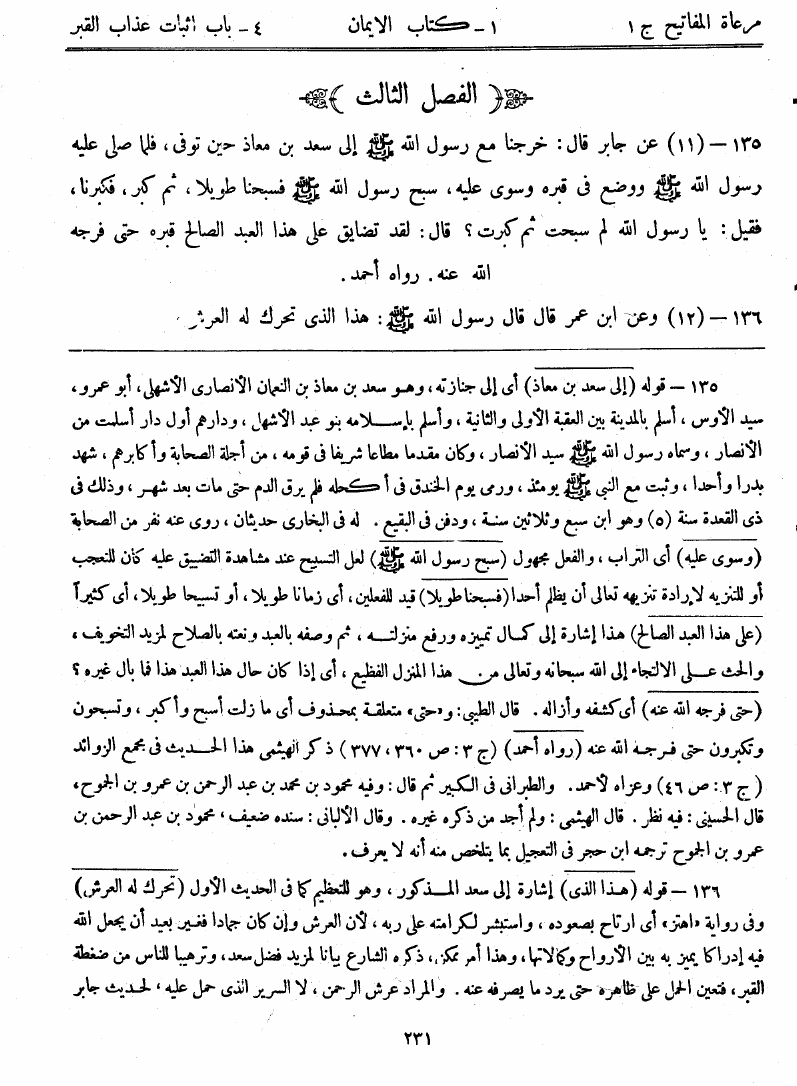 مرعاة المفاتيح ج ١ ١ - كتاب الايمان ٤ - باب اثبات عذاب القبر
﴿ الفصل الثالث ﴾
١٣٥ – (١١) عن جابر قال: خرجنا مع رسول الله ﷺ إلى سعد بن معاذ حين توفى، فلما صلى عليه
رسول الله ﷺ ووضع فى قبره وسوى عليه، سبح رسول الله ﷺ فسبحنا طويلا، ثم كبر، فكبرنا،
فقيل: يا رسول الله لم سبحت ثم كبرت؟ قال: لقد تضايق على هذا العبد الصالح قبره حتى فرجه
الله عنه. رواه أحمد.
١٣٦ – (١٢) وعن ابن عمر قال قال رسول الله ﷺ: هذا الذى تحرك له العرش،
١٣٥ – قوله (إلى سعد بن معاذ) أى إلى جنازته، وهو سعد بن معاذ بن النعمان الأنصارى الأشهلى، أبو عمرو،
سيد الأوس، أسلم بالمدينة بين العقبة الأولى والثانية، وأسلم بإسلامه بنو عبد الأشهل، ودارهم أول دار أسلمت من
الأنصار، وسماه رسول الله ﷺ سيد الأنصار، وكان مقدما مطاعا شريفا فى قومه، من أجلة الصحابة وأكابرهم، شهد
بدرا وأحدا، وثبت مع النبى ﷺ يومئذ، ورمى يوم الخندق فى أكحله فلم يرق الدم حتى مات بعد شهر، وذلك فى
ذى القعدة سنة (٥) وهو ابن سبع وثلاثين سنة، ودفن فى البقيع. له فى البخارى حديثان، روى عنه نفر من الصحابة
(وسوى عليه) أى التراب، والفعل مجهول (سبح رسول الله ﷺ) لعل التسبيح عند مشاهدة التضييق عليه كان للتعجب
أو للتنزيه لإرادة تنزيهه تعالى أن يظلم أحدا (فسبحنا طويلا) قيد للفعلين، أى زمانا طويلا، أو تسبيحا طويلا، أى كثيراً
(على هذا العبد الصالح) هذا إشارة إلى كمال تميزه ورفع منزلته، ثم وصفه بالعبد ونعته بالصلاح لمزيد التخويف،
والحث على الالتجاء إلى الله سبحانه وتعالى من هذا المنزل الفظيع، أى إذا كان حال هذا العبد هذا فما بال غيره؟
(حتى فرجه الله عنه) أى كشفه وأزاله. قال الطيبى: و«حتى» متعلقة بمحذوف أى ما زلت أسبح وأكبر، وتسبحون
وتكبرون حتى فرجه الله عنه (رواه أحمد) (ج ٣: ص ٣٦٠، ٣٧٧) ذكر الهيثمى هذا الحديث فى مجمع الزوائد
(ج ٣: ص ٤٦) وعزاه لأحمد. والطبرانى فى الكبير ثم قال: وفيه محمود بن محمد بن عبد الرحمن بن عمرو بن الجموح،
قال الحسينى: فيه نظر. قال الهيثمى: ولم أجد من ذكره غيره. وقال الألبانى: سنده ضعيف، محمود بن عبد الرحمن بن
عمرو بن الجموح ترجمه ابن حجر فى التعجيل بما يتلخص منه أنه لا يعرف.
١٣٦ – قوله (هذا الذى) إشارة إلى سعد المذكور، وهو للتعظيم كما فى الحديث الأول (تحرك له العرش)
وفى رواية «اهتز» أى ارتاح بصعوده، واستبشر لكرامته على ربه، لأن العرش وإن كان جمادا فغير بعيد أن يجعل الله
فيه إدراكا يميز به بين الأرواح وكمالاتها، وهذا أمر ممكن، ذكره الشارع بيانا لمزيد فضل سعد، وترهيبا للناس من ضغطة
القبر، فتعين الحمل على ظاهره حتى يرد ما يصرفه عنه. والمراد عرش الرحمن، لا السرير الذى حمل عليه، لحديث جابر
٢٣١